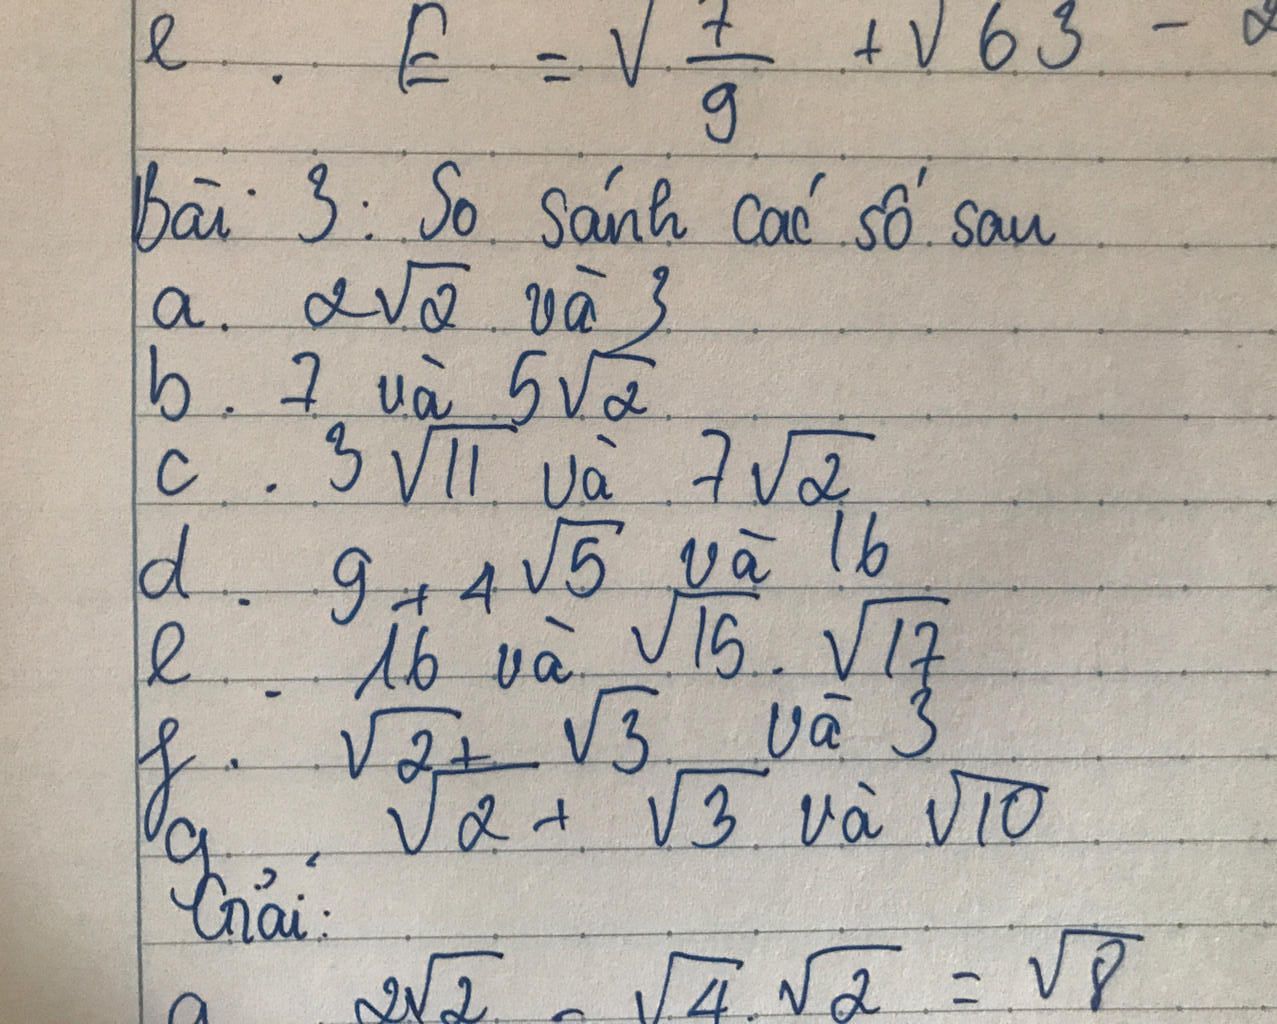 e. E = √7/9 + √63 - 2
bài 3: So sánh các số sau
a. 2√2 và 3
b. 7 và 5√2
c. 3√11 và 7√2
d. 9 + 4√5 và 16
e. 16 và √15 . √17
f. √2 + √3 và 3
g. √2 + √3 và √10
Giải:
a 2√2 = √4 . √2 = √8